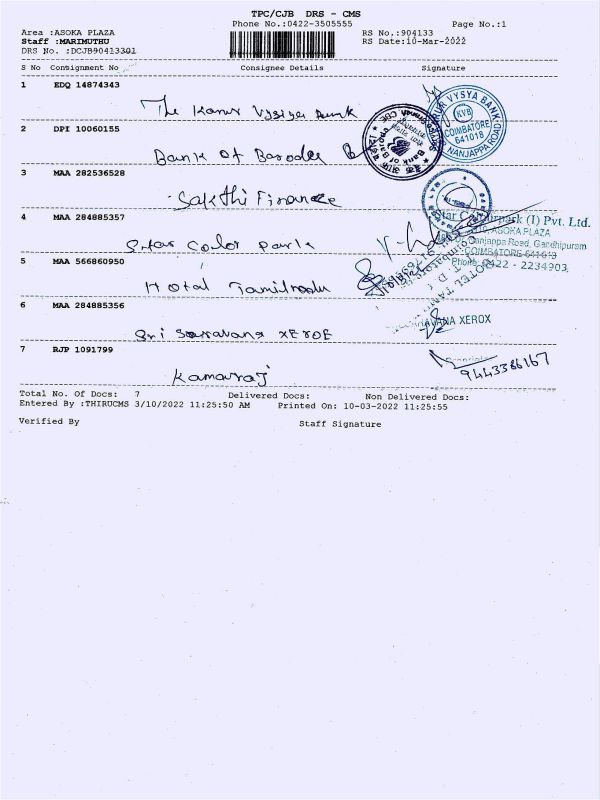 TPC/CJB DRS - CMS
Phone No.:0422-3505555
Page No.:1
Area :ASOKA PLAZA
RS No.:904133
Staff :MARIMUTHU
RS Date:10-Mar-2022
DRS No. :DCJB90413301
S No Consignment No Consignee Details Signature
1 EDQ 14874343
The Karur Vysya Bank
KARUR VYSYA BANK
KVB
COIMBATORE
641018
NANJAPPA ROAD
2 DPI 10060155
Bank of Baroda
Bank of Baroda
3 MAA 282536528
Sakthi Finance
4 MAA 284885357
Star Color Park
Star Colourpark (I) Pvt. Ltd.
ASOKA PLAZA
Nanjappa Road, Gandhipuram
COIMBATORE-641 018
Phone: 0422 - 2234903,
5 MAA 566860950
Hotal Tamilnadu
HOTEL TAMIL
6 MAA 284885356
Sri Saravana XEROE
SARAVANA XEROX
7 RJP 1091799
Kamaraj
9443386167
Total No. Of Docs: 7 Delivered Docs: Non Delivered Docs:
Entered By :THIRUCMS 3/10/2022 11:25:50 AM Printed On: 10-03-2022 11:25:55
Verified By Staff Signature